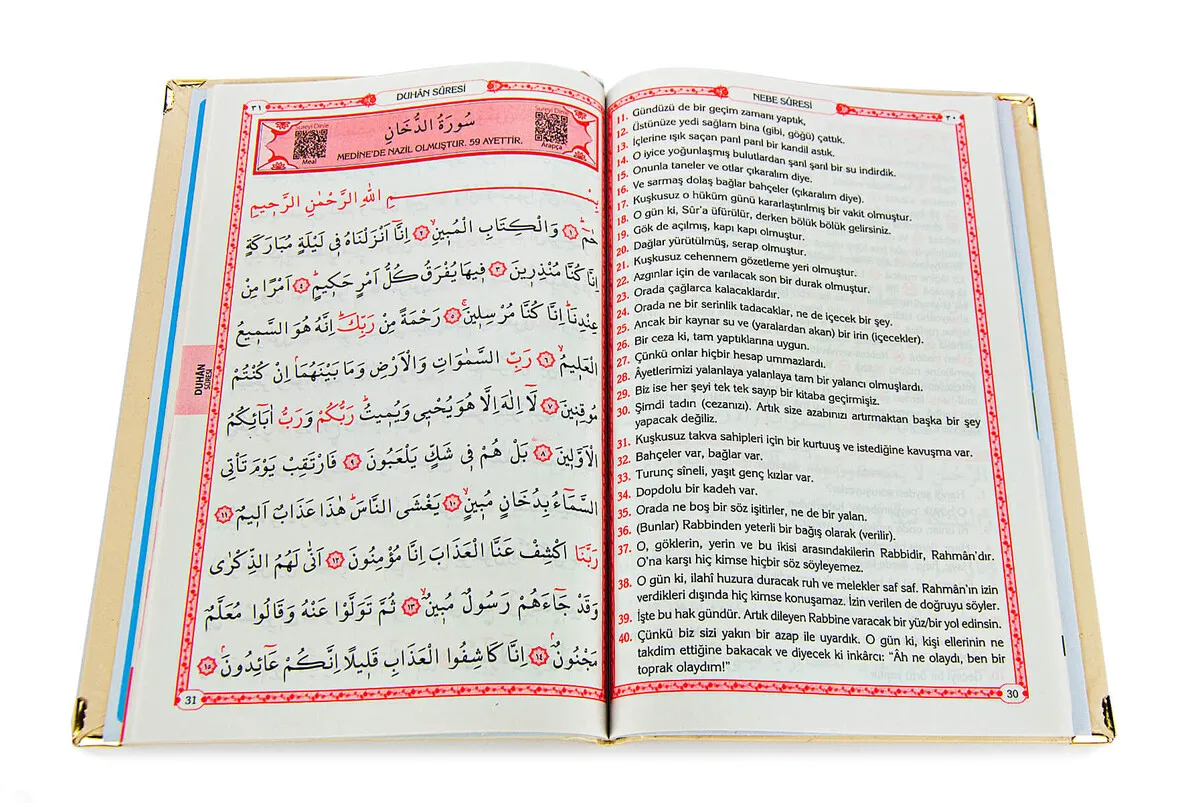 NEBE SÛRESİ
٣٠
11. Gündüzü de bir geçim zamanı yaptık.
12. Üstünüze yedi sağlam bina (gibi, göğü) çattık.
13. İçlerine ışık saçan parıl parıl bir kandil astık.
14. O iyice yoğunlaşmış bulutlardan şarıl şarıl bir su indirdik.
15. Onunla taneler ve otlar çıkaralım diye.
16. Ve sarmaş dolaş bağlar bahçeler (çıkaralım diye).
17. Kuşkusuz o hüküm günü kararlaştırılmış bir vakit olmuştur.
18. O gün ki, Sûr'a üfürülür, derken bölük bölük gelirsiniz.
19. Gök de açılmış, kapı kapı olmuştur.
20. Dağlar yürütülmüş, serap olmuştur.
21. Kuşkusuz cehennem gözetleme yeri olmuştur.
22. Azgınlar için de varılacak son bir durak olmuştur.
23. Orada çağlarca kalacaklardır.
24. Orada ne bir serinlik tadacaklar, ne de içecek bir şey.
25. Ancak bir kaynar su ve (yaralardan akan) bir irin (içecekler).
26. Bir ceza ki, tam yaptıklarına uygun.
27. Çünkü onlar hiçbir hesap ummazlardı.
28. Âyetlerimizi yalanlaya yalanlaya tam bir yalancı olmuşlardı.
29. Biz ise her şeyi tek tek sayıp bir kitaba geçirmişiz.
30. Şimdi tadın (cezanızı). Artık size azabınızı artırmaktan başka bir şey
yapacak değiliz.
31. Kuşkusuz takva sahipleri için bir kurtuuş ve istediğine kavuşma var.
32. Bahçeler var, bağlar var.
33. Turunç sîneli, yaşıt genç kızlar var.
34. Dopdolu bir kadeh var.
35. Orada ne boş bir söz işitirler, ne de bir yalan.
36. (Bunlar) Rabbinden yeterli bir bağış olarak (verilir).
37. O, göklerin, yerin ve bu ikisi arasındakilerin Rabbidir, Rahmân'dır.
O'na karşı hiç kimse hiçbir söz söyleyemez.
38. O gün ki, ilahî huzura duracak ruh ve melekler saf saf. Rahmân'ın izin
verdikleri dışında hiç kimse konuşamaz. İzin verilen de doğruyu söyler.
39. İşte bu hak gündür. Artık dileyen Rabbine varacak bir yüz/bir yol edinsin.
40. Çünkü biz sizi yakın bir azap ile uyardık. O gün ki, kişi ellerinin ne
takdim ettiğine bakacak ve diyecek ki inkârcı: "Âh ne olaydı, ben bir
toprak olaydım!"
30
٣١
DUHÂN SÛRESİ
Sureyi Dinle
Meal
سُورَةُ الدُّخَانِ
MEDİNE'DE NAZİL OLMUŞTUR. 59 AYETTİR.
Sureyi Dinle
Arapça
بِسْمِ اللهِ الرَّحْمٰنِ الرَّحِيمِ
حٰمٓ ﴿١﴾ وَالْكِتَابِ الْمُبِينِ ﴿٢﴾ اِنَّٓا اَنْزَلْنَاهُ فِي لَيْلَةٍ مُبَارَكَةٍ
اِنَّا كُنَّا مُنْذِرِينَ ﴿٣﴾ فِيهَا يُفْرَقُ كُلُّ اَمْرٍ حَكِيمٍ ﴿٤﴾ اَمْرًا مِنْ
عِنْدِنَا اِنَّا كُنَّا مُرْسِلِينَ ﴿٥﴾ رَحْمَةً مِنْ رَبِّكَ اِنَّهُ هُوَ السَّمِيعُ
الْعَلِيمُ ﴿٦﴾ رَبِّ السَّمٰوَاتِ وَالْاَرْضِ وَمَا بَيْنَهُمَا اِنْ كُنْتُمْ
مُوقِنِينَ ﴿٧﴾ لَٓا اِلٰهَ اِلَّا هُوَ يُحْيِي وَيُمِيتُ رَبُّكُمْ وَرَبُّ اٰبَٓائِكُمُ
الْاَوَّلِينَ ﴿٨﴾ بَلْ هُمْ فِي شَكٍّ يَلْعَبُونَ ﴿٩﴾ فَارْتَقِبْ يَوْمَ تَأْتِي
السَّمَٓاءُ بِدُخَانٍ مُبِينٍ ﴿١٠﴾ يَغْشَى النَّاسَ هٰذَا عَذَابٌ اَلِيمٌ ﴿١١﴾
رَبَّنَا اكْشِفْ عَنَّا الْعَذَابَ اِنَّا مُؤْمِنُونَ ﴿١٢﴾ اَنّٰى لَهُمُ الذِّكْرٰى
وَقَدْ جَٓاءَهُمْ رَسُولٌ مُبِينٌ ﴿١٣﴾ ثُمَّ تَوَلَّوْا عَنْهُ وَقَالُوا مُعَلَّمٌ
مَجْنُونٌ ﴿١٤﴾ اِنَّا كَاشِفُوا الْعَذَابِ قَلِيلًا اِنَّكُمْ عَٓائِدُونَ ﴿١٥﴾
DUHÂN
SÛRESİ
31